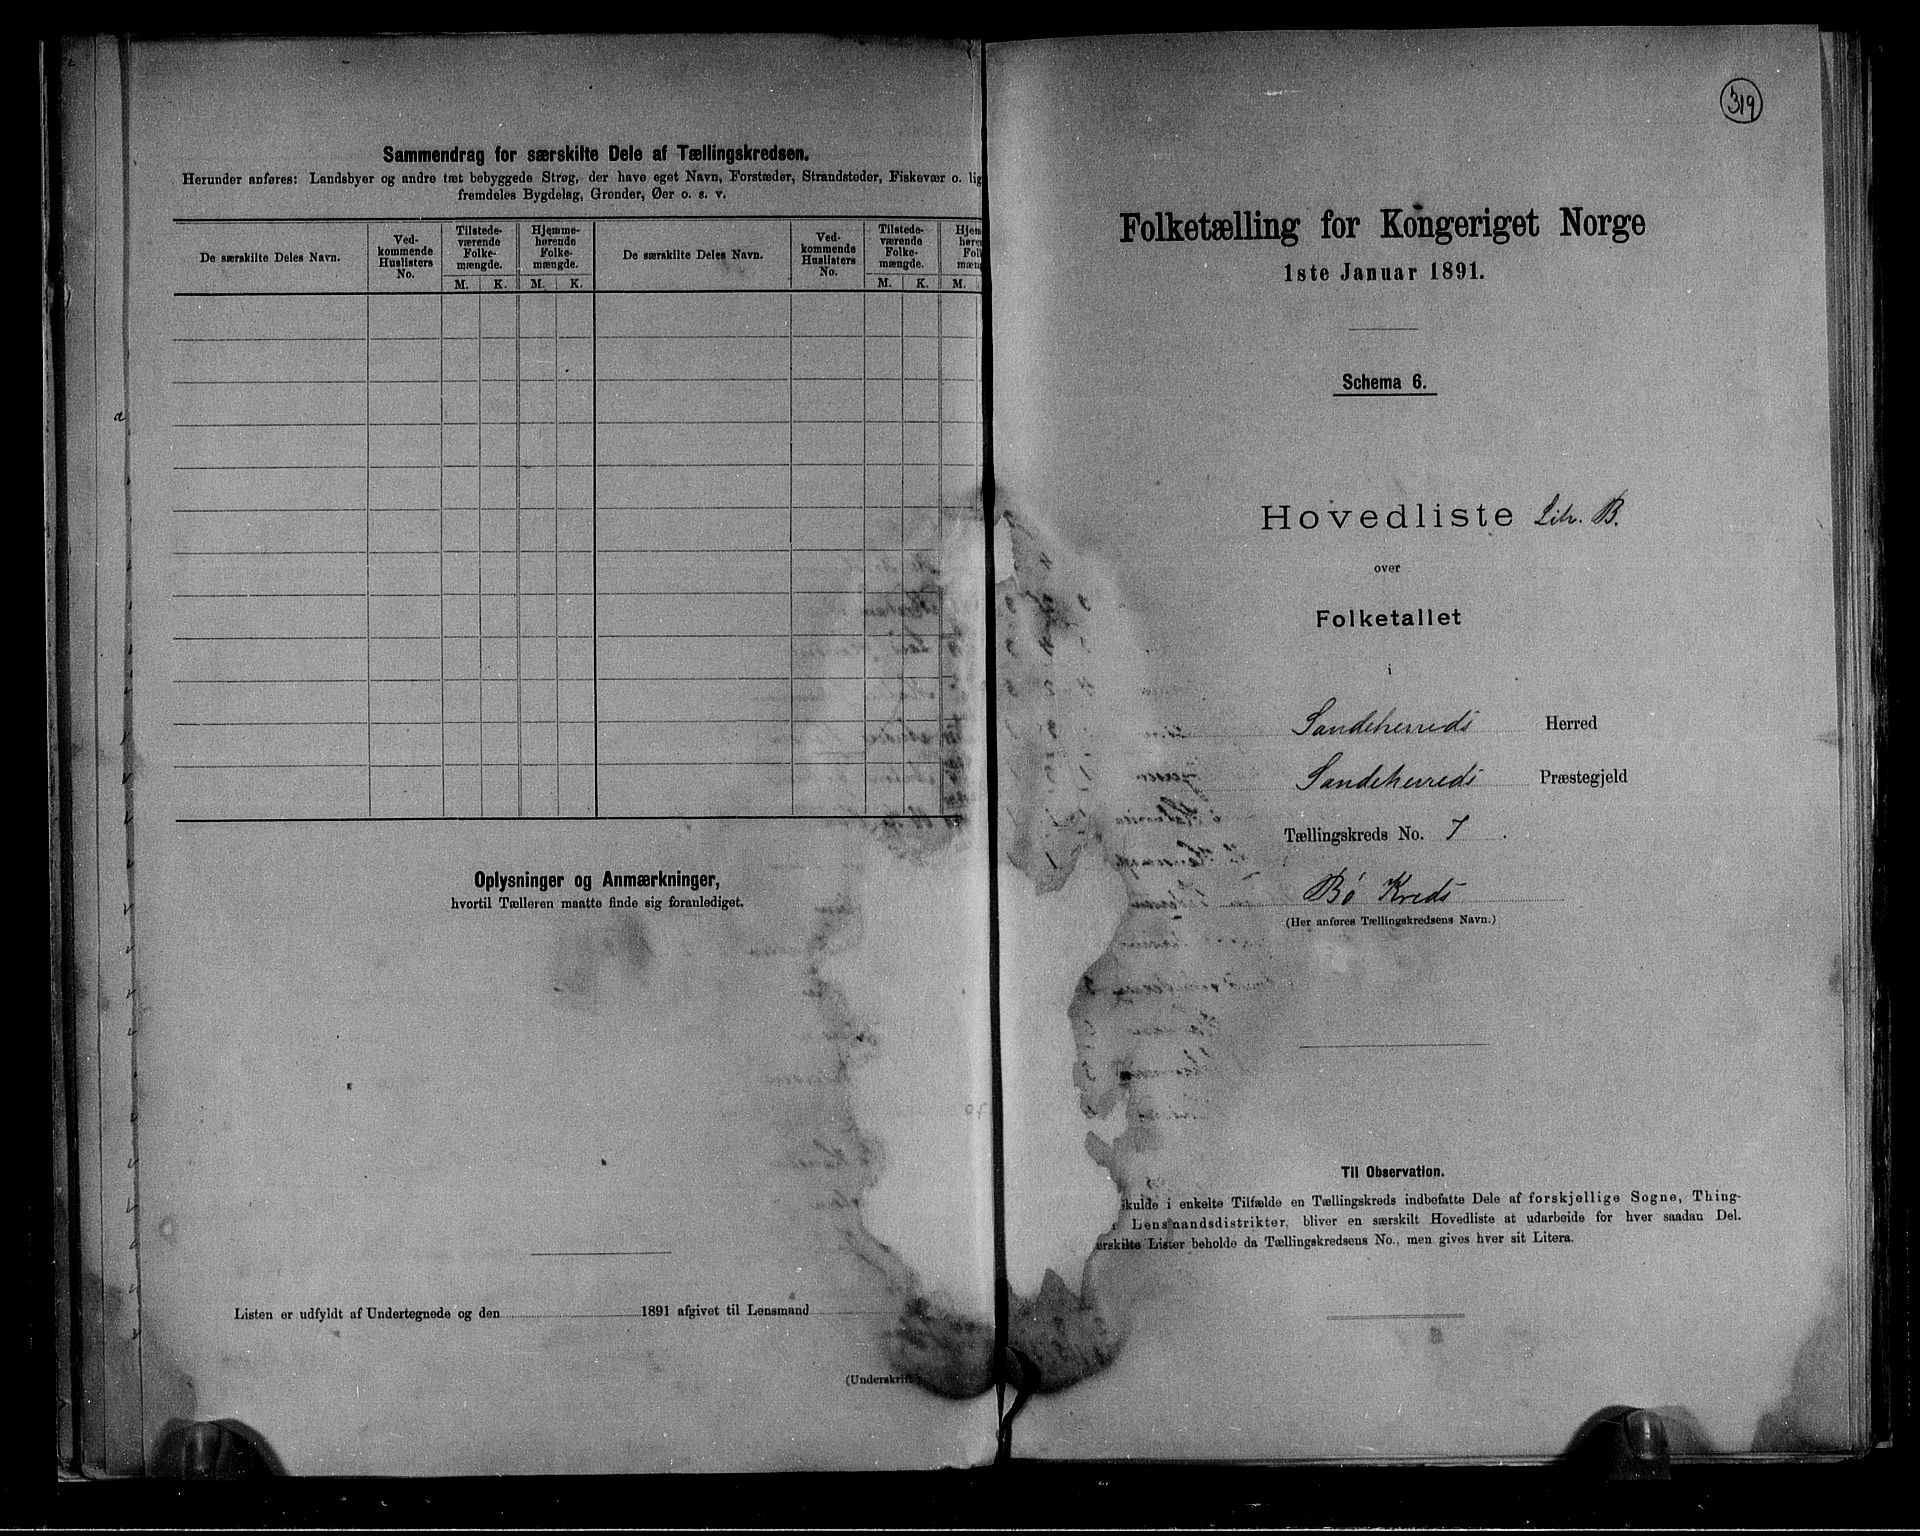 Sammendrag for særskilte Dele af Tællingskredsen.
Herunder anføres: Landsbyer og andre tæt bebyggede Strøg, der have eget Navn, Forstæder, Strandsteder, Fiskevær o. lig
fremdeles Bygdelag, Grender, Øer o. s. v.
De særskilte Deles Navn.
Ved-
kommende
Huslisters
No.
Tilstede-
værende
Folke-
mængde.
Hjemme-
hørende
Folke-
mængde.
M. K. M. K.
De særskilte Deles Navn.
Ved-
kommende
Huslisters
No.
Tilstede-
værende
Folke-
mængde.
Hjem
høre
Fol
mæn
M. K. M.
Oplysninger og Anmærkninger,
hvortil Tælleren maatte finde sig foranlediget.
Listen er udfyldt af Undertegnede og den 1891 afgivet til Lensmand
(Underskrift
319
Folketælling for Kongeriget Norge
1ste Januar 1891.
Schema 6.
Hovedliste Litr. B.
over
Folketallet
i
Sandeherreds Herred
Sandeherreds Præstegjeld
Tællingskreds No. 7.
Bø Kreds
(Her anføres Tællingskredsens Navn.)
Til Observation.
Skulde i enkelte Tilfælde en Tællingskreds indbefatte Dele af forskjellige Sogne, Thing-
Lensmandsdistrikter, bliver en særskilt Hovedliste at udarbeide for hver saadan Del.
ærskilte Lister beholde da Tællingskredsens No., men gives hver sit Litera.